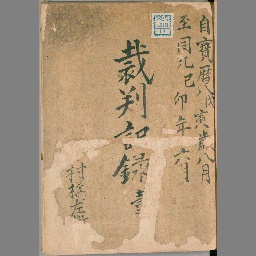 自寳暦八戊寅歳八月
至同九己卯年六月
裁判記録 壹
村橋